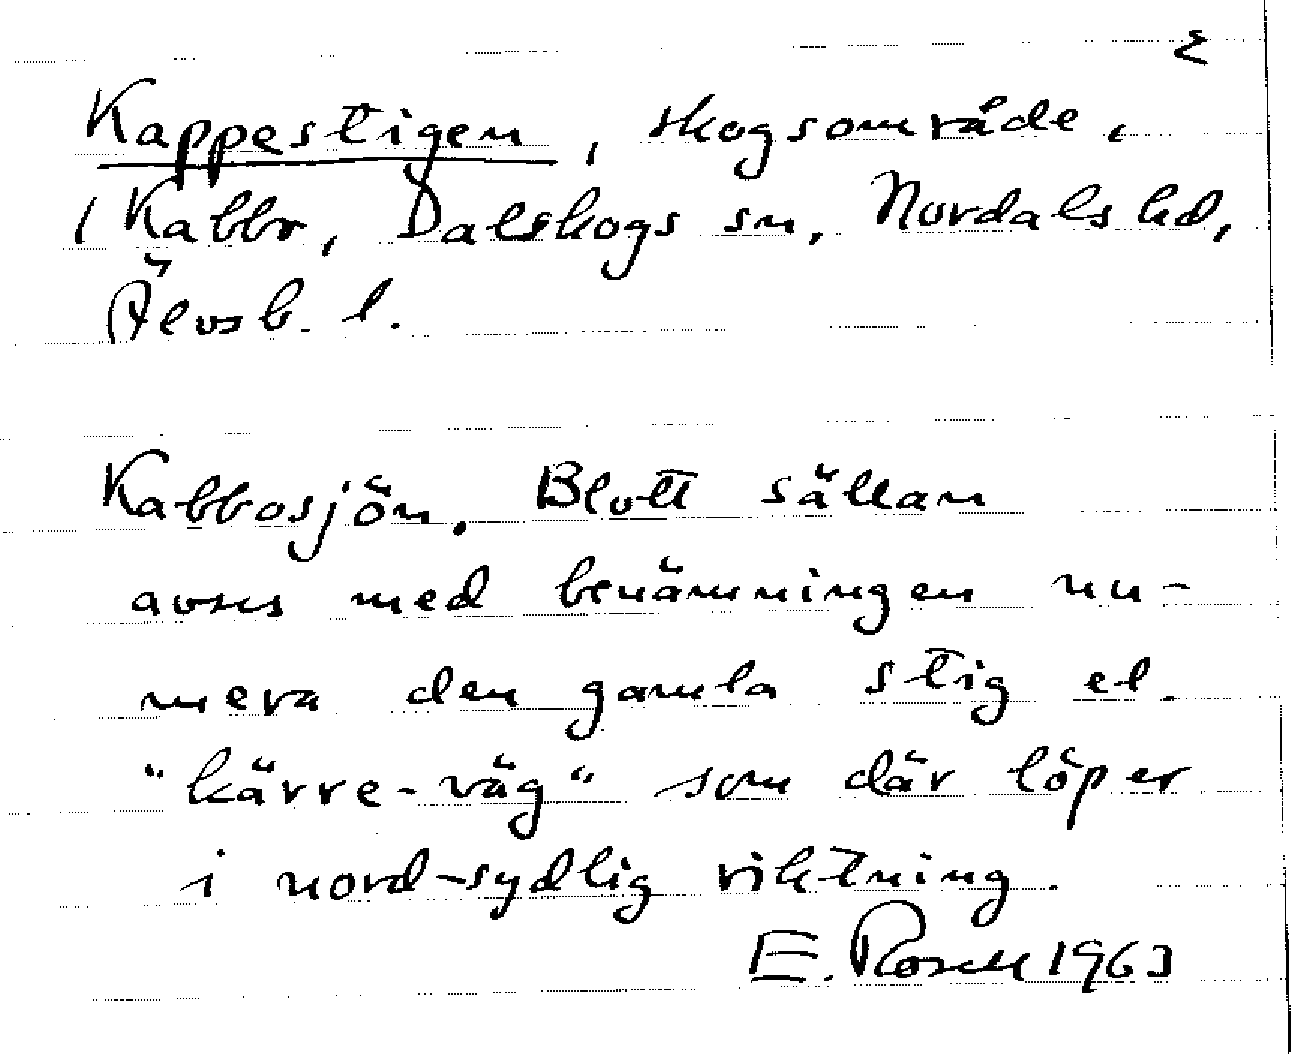 Kappestigen, skogsområde,
i Kabbo, Dalskogs sn, Nordals hd,
Älvsb. l.
Kabbosjön. Blott sällan
avses med benämningen nu-
mera den gamla stig el.
"kärre-väg" som där löper
i nord-sydlig riktning.
E. Rosell 1963